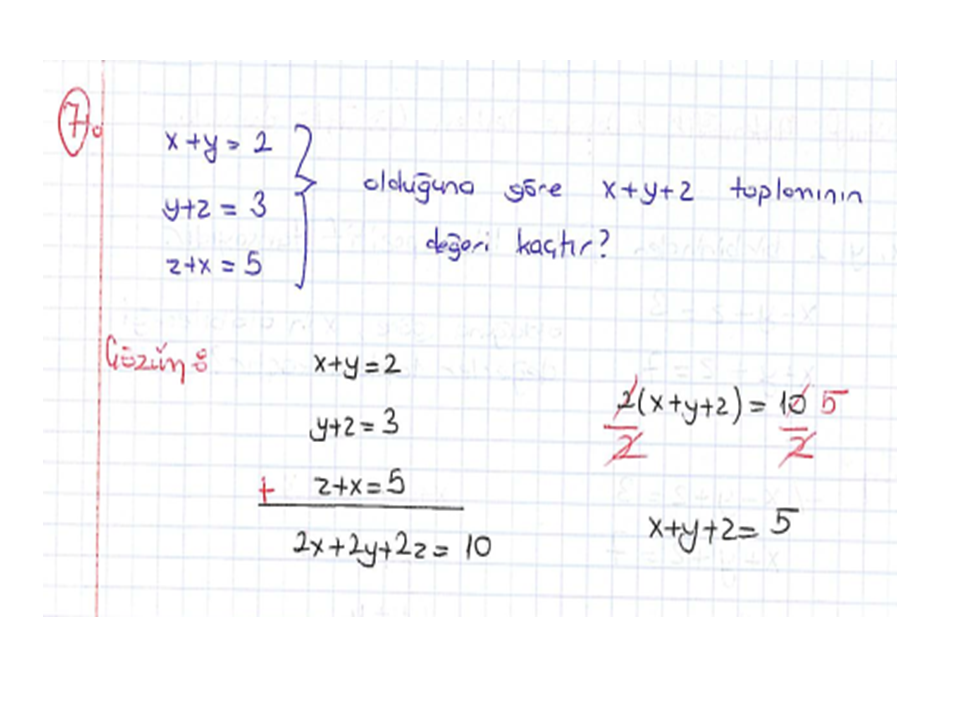 7.
x+y=2
y+z=3
z+x=5
olduğuna göre x+y+z toplamının
değeri kaçtır?
Çözüm:
x+y=2
y+z=3
+ z+x=5
2x+2y+2z=10
2(x+y+z)=10 5
2 2
x+y+z=5